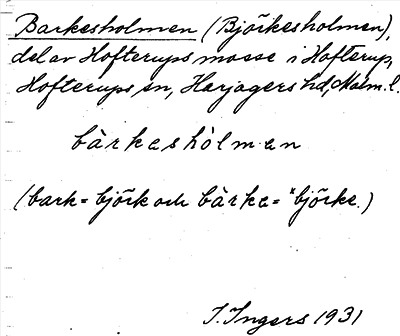 Barkesholmen (Björkesholmen),
del av Hofterups mosse i Hofterup,
Hofterups sn, Harjagers hd, Malm. l.
bàrkeshòlmen
(bark = björk och bàrke = *björke.)
I. Ingers 1931